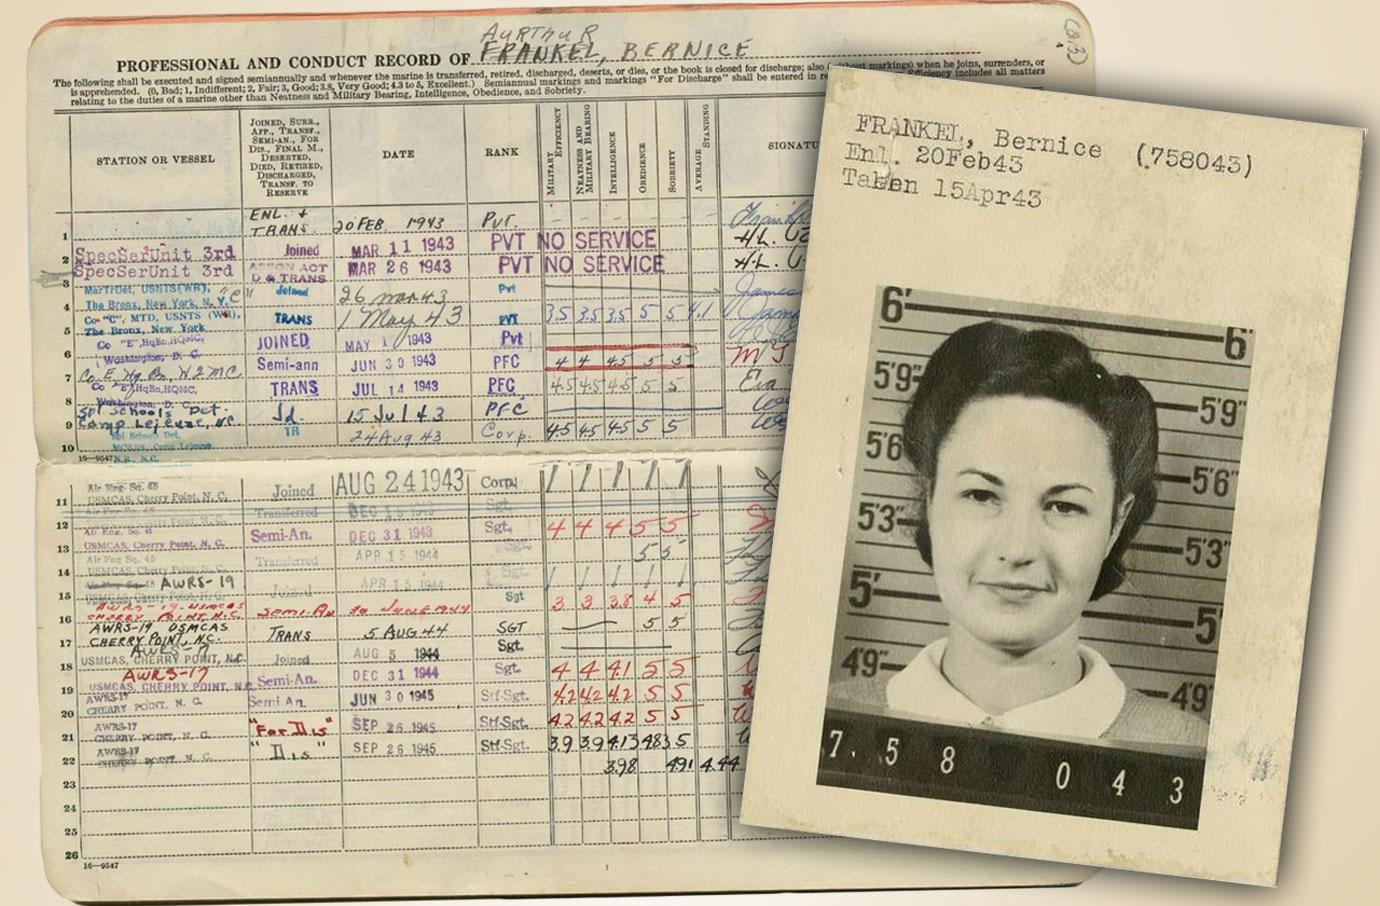 AURTHUR
PROFESSIONAL AND CONDUCT RECORD OF FRANKEL, BERNICE
The following shall be executed and signed semiannually and whenever the marine is transferred, retired, discharged, deserts, or dies, or the book is closed for discharge; also (without markings) when he joins, surrenders, or
is apprehended. (0, Bad; 1, Indifferent; 2, Fair; 3, Good; 3.8, Very Good; 4.3 to 5, Excellent.) Semiannual markings and markings "For Discharge" shall be entered in Efficiency includes all matters
relating to the duties of a marine other than Neatness and Military Bearing, Intelligence, Obedience, and Sobriety.
STATION OR VESSEL
JOINED, SURR., APP., TRANSF., SEMI-AN., FOR DIS., FINAL M., DESERTED, DIED, RETIRED, DISCHARGED, TRANSF. TO RESERVE
DATE
RANK
MILITARY EFFICIENCY
NEATNESS AND MILITARY BEARING
INTELLIGENCE
OBEDIENCE
SOBRIETY
AVERAGE STANDING
SIGNATU
1 ENL. & TRANS. 20 FEB. 1943 Pvt.
2 SpecSerUnit 3rd Joined MAR 11 1943 PVT NO SERVICE
3 SpecSerUnit 3rd D & TRANS MAR 26 1943 PVT NO SERVICE
4 MarTrDet, USNTS(WR), The Bronx, New York, N. Y. "C" Joined 26 mar 43 Pvt
5 Co "C", MTD, USNTS (WR), The Bronx, New York TRANS 1 May 43 PVT 3.5 3.5 3.5 5 5 4.1
6 Co "E", HqBn, HQMC, Washington, D. C. JOINED MAY 1 1943 Pvt
7 Co. E, Hq. Bn. Semi-ann JUN 30 1943 PFC 4 4 4.5 5 5
8 Co "E" HqBn, HQMC, Washington, D. C. TRANS JUL 14 1943 PFC 4.5 4.5 4.5 5 5
9 Spl Schools Det. Camp Lejeune, NC. Jd 15 Jul 43 PFC
10 Spl School Det, Camp Lejeune N.R., N.C. TR 24 Aug 43 Corp. 4.5 4.5 4.5 5 5
16—9547
11 Air Eng. Sq. 45 USMCAS, Cherry Point, N. C. Joined AUG 24 1943 Corpl
12 Transferred Sgt.
13 Air Eng. Sq. 45 USMCAS, Cherry Point, N. C. Semi-An. DEC 31 1943 Sgt. 4 4 4 5 5
14 Air Eng Sq. 45 USMCAS, Cherry Point, N. C. Transferred APR 15 1944 Sgt. 5 5
15 AWRS-19 Joined APR 15 1944 Sgt
16 AWRS-19-USMCAS CHERRY POINT, N.C. SEMI-An 30 June 1944 Sgt 3 3 3.8 4 5
17 AWRS-19 USMCAS CHERRY POINT, N.C. TRANS 5 AUG 44 SGT 5 5
18 AWRS-17 USMCAS, CHERRY POINT, N.C. Joined AUG 5 1944 Sgt.
19 AWRS-17 USMCAS, CHERRY POINT, N.C. Semi-An. DEC 31 1944 Sgt. 4 4 4.1 5 5
20 AWRS-17 CHERRY POINT, N. C. Semi-An. JUN 30 1945 Stf-Sgt. 4.2 4.2 4.2 5 5
21 AWRS-17 CHERRY POINT, N. C. "For Dis" SEP 26 1945 Stf-Sgt. 4.2 4.2 4.2 5 5
22 AWRS-17 CHERRY POINT, N. C. "Dis" SEP 26 1945 Stf-Sgt. 3.9 3.9 4.13 4.83 5
3.98 4.91 4.44
23
24
25
26
16—9547
FRANKEL, Bernice (758043)
Enl. 20Feb43
Taken 15Apr43
6' 6'
5'9" 5'9"
5'6 5'6"
5'3" 5'3"
5' 5'
4'9" 4'9"
7. 5 8 0 4 3